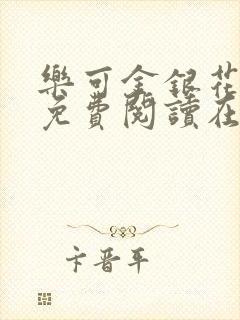 樂可金銀花
免費閱讀在
卞晋平